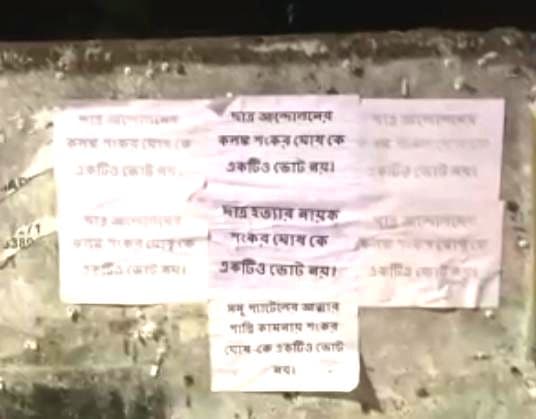 ছাত্র আন্দোলনের
কলঙ্ক শংকর ঘোষ কে
একটিও ভোট নয়।
ছাত্র আন্দোলনের
কলঙ্ক শংকর ঘোষ কে
একটিও ভোট নয়।
ছাত্র আন্দোলনের
একটিও ভোট নয়।
ছাত্র আন্দোলনের
কলঙ্ক শংকর ঘোষ কে
একটিও ভোট নয়।
ছাত্র হত্যার নায়ক
শংকর ঘোষ কে
একটিও ভোট নয়।
ছাত্র আন্দোলনের
কলঙ্ক শংকর ঘোষ কে
একটিও ভোট নয়।
প্যাটেলের আত্মার
শান্তি কামনায় শংকর
ঘোষ-কে একটিও ভোট
নয়।